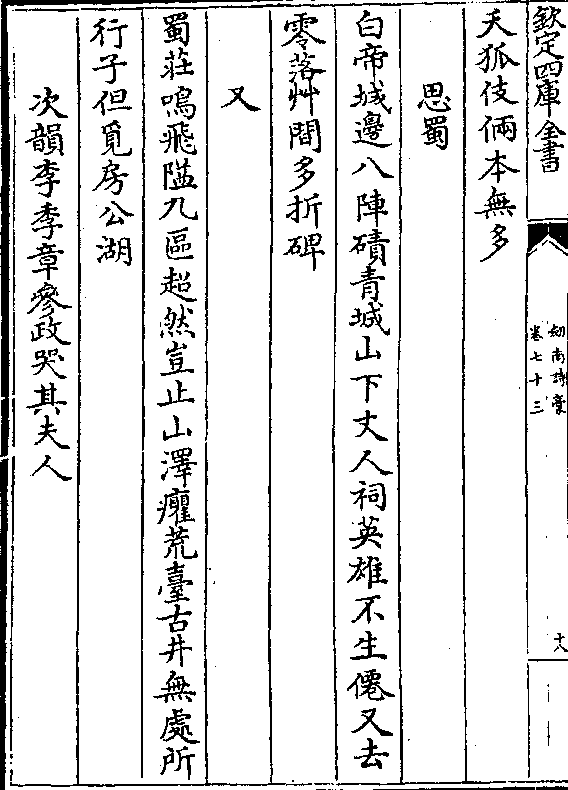 欽定四庫全書
劍南詩稾
卷七十三
十八
天狐伎倆本無多
思蜀
白帝城邊八陣磧青城山下丈人祠英雄不生僊又去
零落艸間多折碑
又
蜀莊鳴飛隘九區超然豈止山澤癯荒臺古井無處所
行子但覓房公湖
次韻李季章參政哭其夫人